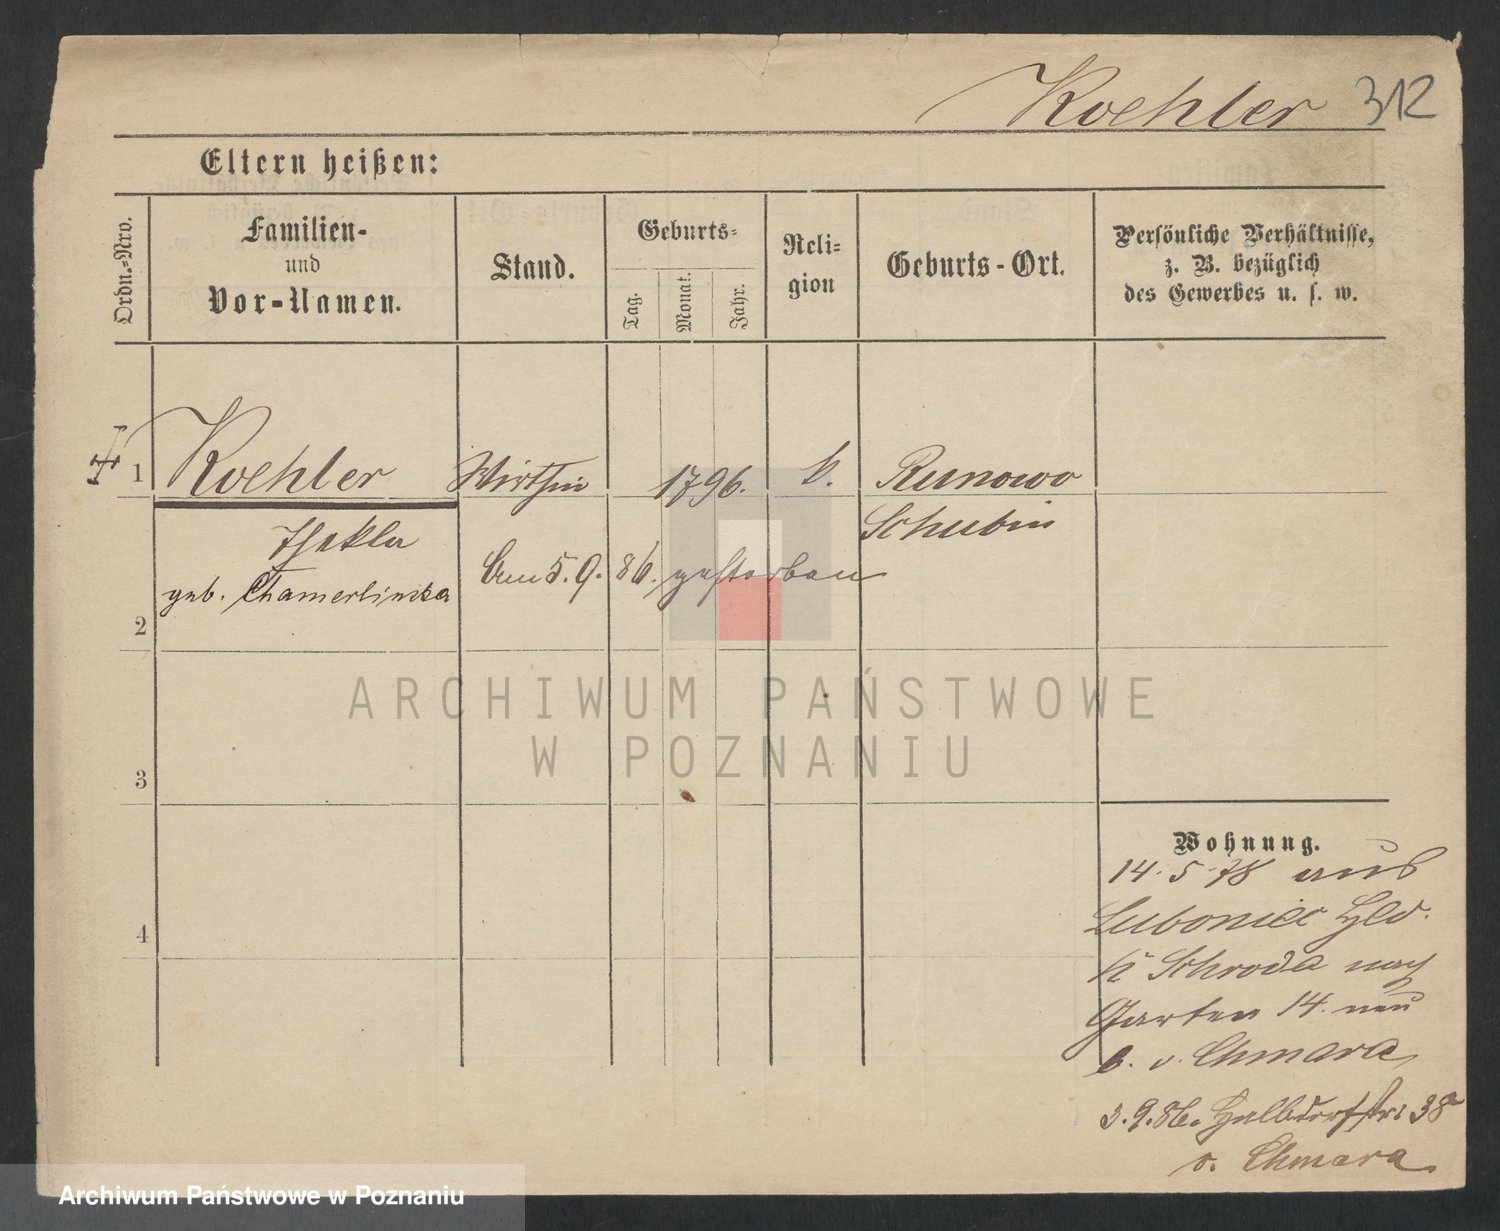 Koehler 312
Eltern heißen:
Ordn.-Nro.
Familien-
und
Vor-Namen.
Stand.
Geburts-
Tag.
Monat.
Jahr.
Reli-
gion
Geburts-Ort.
Persönliche Verhältnisse,
z. B. bezüglich
des Gewerbes u. s. w.
1 Koehler Wirthin 1796. k. Runowo
Schubin
Thekla
geb. Chamerlinska
Am 5.9.86. gestorben
2
3
4
ARCHIWUM PAŃSTWOWE
W POZNANIU
Wohnung.
14.5.78 aus
Luboniec Hld.
Schroda nach
Garten 14. neu
b. v. Chmara
3.9.86. Halbdorfstr: 38
v. Chmara
Archiwum Państwowe w Poznaniu